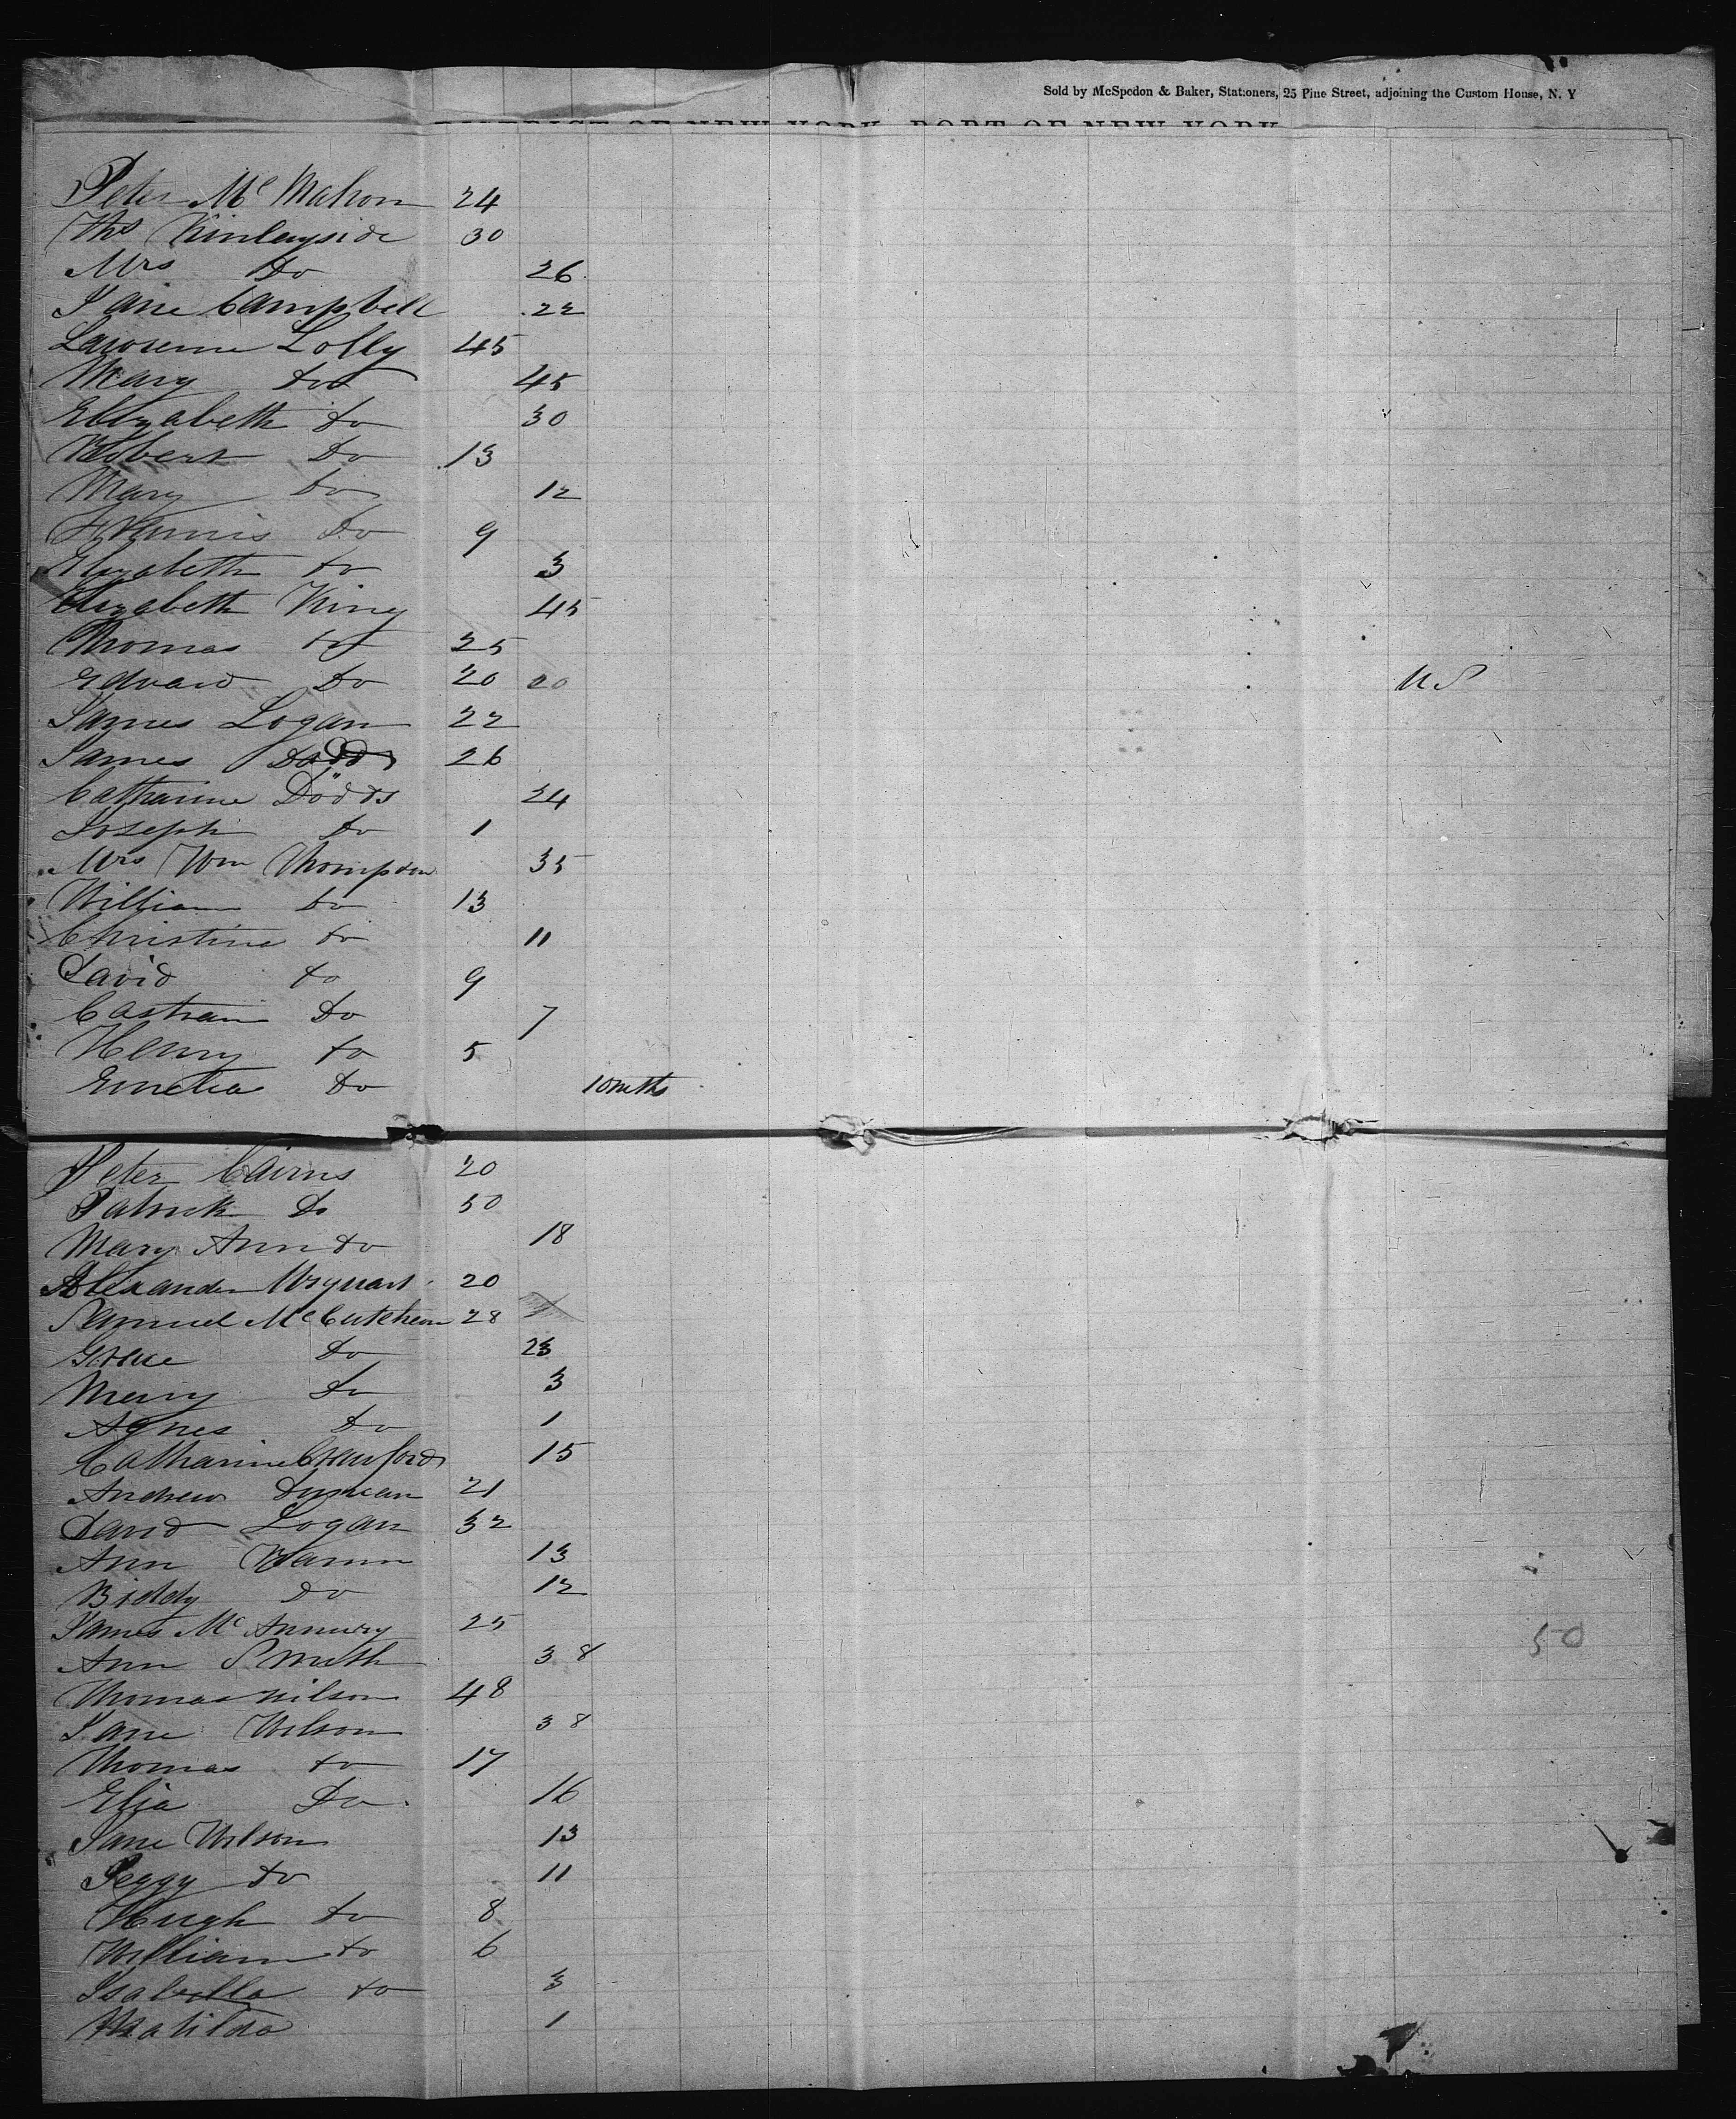 Sold by McSpedon & Baker, Stationers, 25 Pine Street, adjoining the Custom House, N. Y
DISTRICT OF NEW YORK, PORT OF NEW YORK
Peter Mc Mahon 24
Ths Kinleyside 30
Mrs Do 26
Jane Campbell 22
Lawrence Lolly 45
Mary Do 45
Elizabeth Do 30
Robert Do 13
Mary Do 12
Francis Do 9
Elizabeth Do 3
Elizabeth King 45
Thomas Do 25
Edward Do 20 20 US
James Logan 22
James Dodds 26
Catharine Dodds 24
Joseph Do 1
Mrs Wm Thompson 35
William Do 13
Christina Do 11
David Do 9
Do 7
Henry Do 5
Emelia Do 10 mths
Peter Cairns 20
Patrick Do 50
Mary Ann Do 18
Alexander Urquart 20
Samuel McCutcheon 28
Do 23
Mary Do 3
Agnes Do 1
Catharine Crawford 15
Andrew Duncan 21
David Logan 32
Ann 13
Biddy Do 12
James Mc 25
Ann Smith 38
50
Thomas Wilson 48
Jane Wilson 38
Thomas Do 17
Eliza Do 16
Jane Wilson 13
Peggy Do 11
Hugh Do 8
William Do 6
Isabella Do 3
Matilda 1